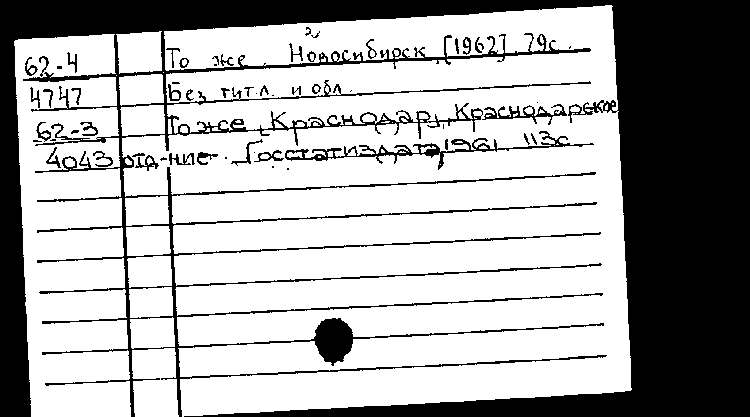 2
62-4 То же. Новосибирск, [1962]. 79с.
4747 Без тит.л. и обл.
62-3 То же, Краснодар, Краснодарское
4043 отд-ние Госстатиздата, 1961. 113с.